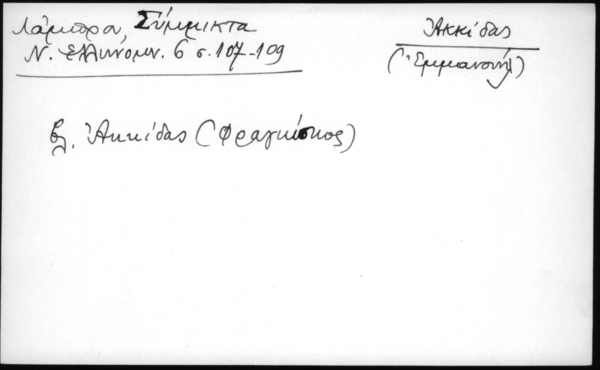 Λάμπρου, Σύμμικτα
Ν. Ἑλληνομν. 6 σ. 107-109
Ἀκκίδας
(Ἐμμανουήλ)
βλ. Ἀκκίδας (Φραγκίσκος)